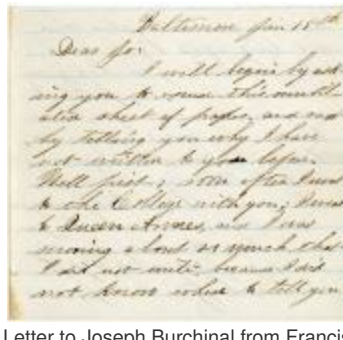 Baltimore Jan 15th
Dear Jo:
I will begin by ask
ing you to excuse this
sheet of paper, and
by telling you why I have
not written to you before.
Well first, soon after I was
to the College with you, I was
to Queen Annes, and I was
moving about so much that
I did not write because I did
not know where to tell you
Letter to Joseph Burchinal from Francis